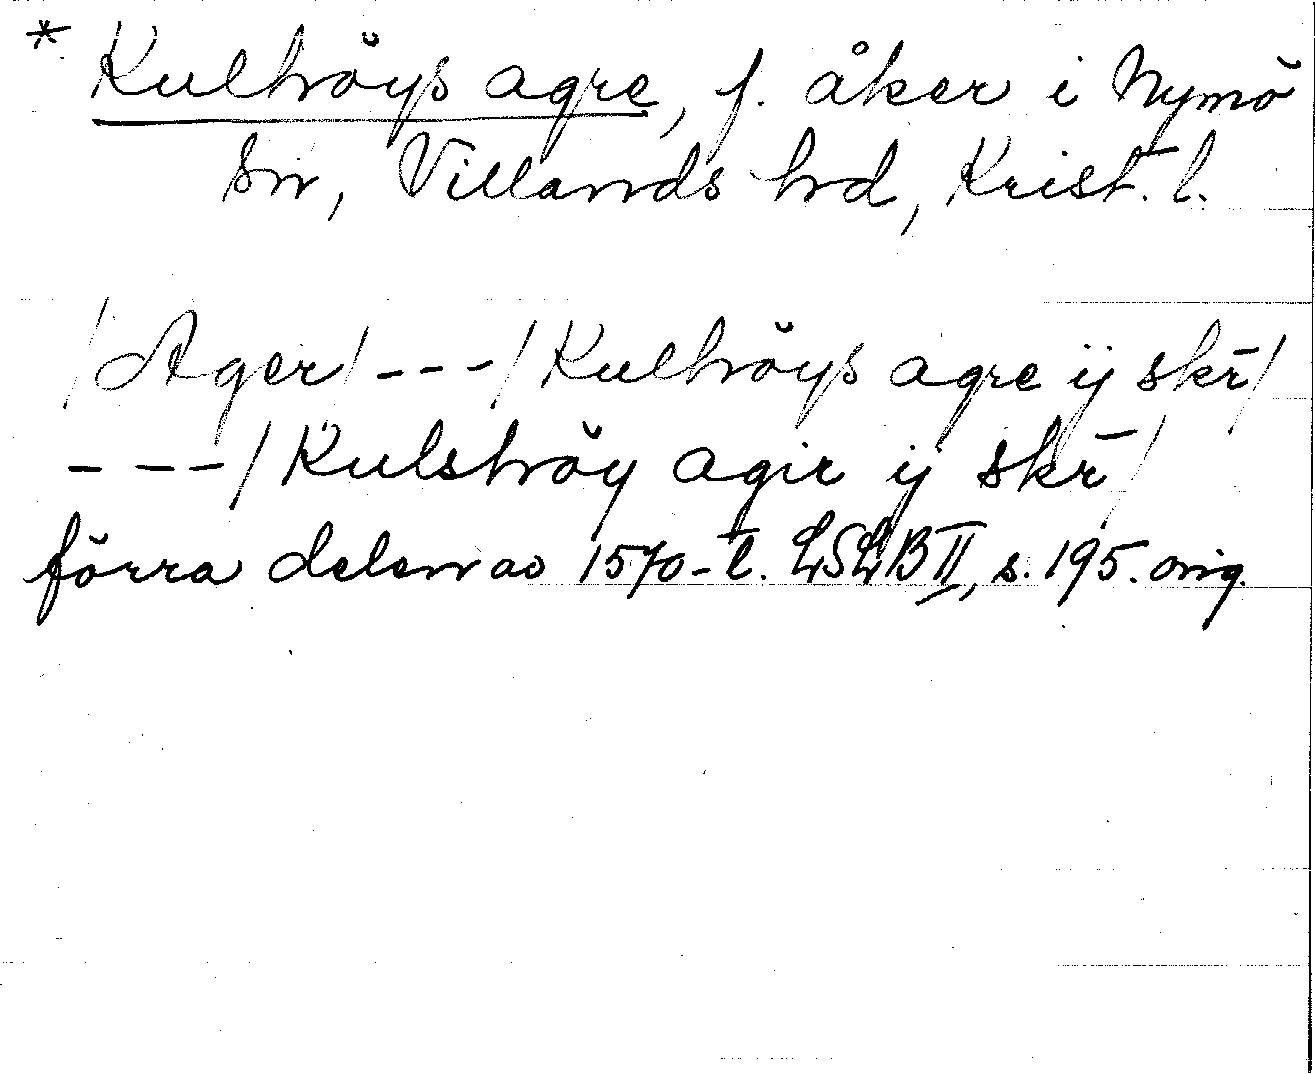 * Kulhöys agre, f. åker i Nymö
sn, Villands hrd, Krist. l.
/Ager/ - - - / Kulhöys agre ij skr̄ /
- - - / Kulshöy agir ij skr̄ /
förra delen av 1570-t. LSLB II, s. 195. orig.